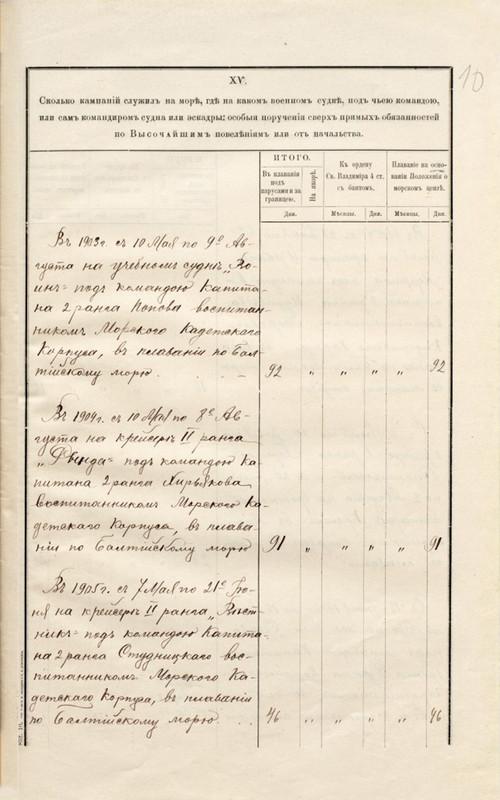 10
XV.
Сколько кампаній служилъ на морѣ, гдѣ на какомъ военномъ суднѣ, подъ чьею командою,
или самъ командиромъ судна или эскадры; особыя порученія сверхъ прямыхъ обязанностей
по Высочайшимъ повелѣніямъ или отъ начальства.
ИТОГО.
Въ плаваніи подъ парусами и за границею.
На якорѣ.
Къ ордену Св. Владиміра 4 ст. съ бантомъ.
Плаваніе на основаніи Положенія о морскомъ цензѣ.
Дни. Мѣсяцы. Дни. Мѣсяцы. Дни.
Въ 1903г. съ 10 Мая по 9е Ав-
густа на учебномъ суднѣ „Во-
инъ" подъ командою Капита-
на 2 ранга Попова воспитан-
никомъ Морского Кадетскаго
Корпуса, въ плаваніи по Бал-
тійскому морю . . — 92 „ „ „ „ 92
Въ 1904г. съ 10 Мая по 8е Ав-
густа на крейсерѣ II ранга
„Рында" подъ командою Ка-
питана 2 ранга Хирьякова
воспитанникомъ Морского Ка-
детскаго Корпуса, въ плава-
ніи по Балтійскому морю 91 „ „ „ „ 91
Въ 1905г. съ 7 Мая по 21е Iю-
ня на крейсерѣ II ранга „Вѣст-
никъ" подъ командою Капита-
на 2 ранга Студницкаго вос-
питанникомъ Морского Ка-
детскаго Корпуса, въ плаваніи
по Балтійскому морю . . . 46 „ „ „ „ 46